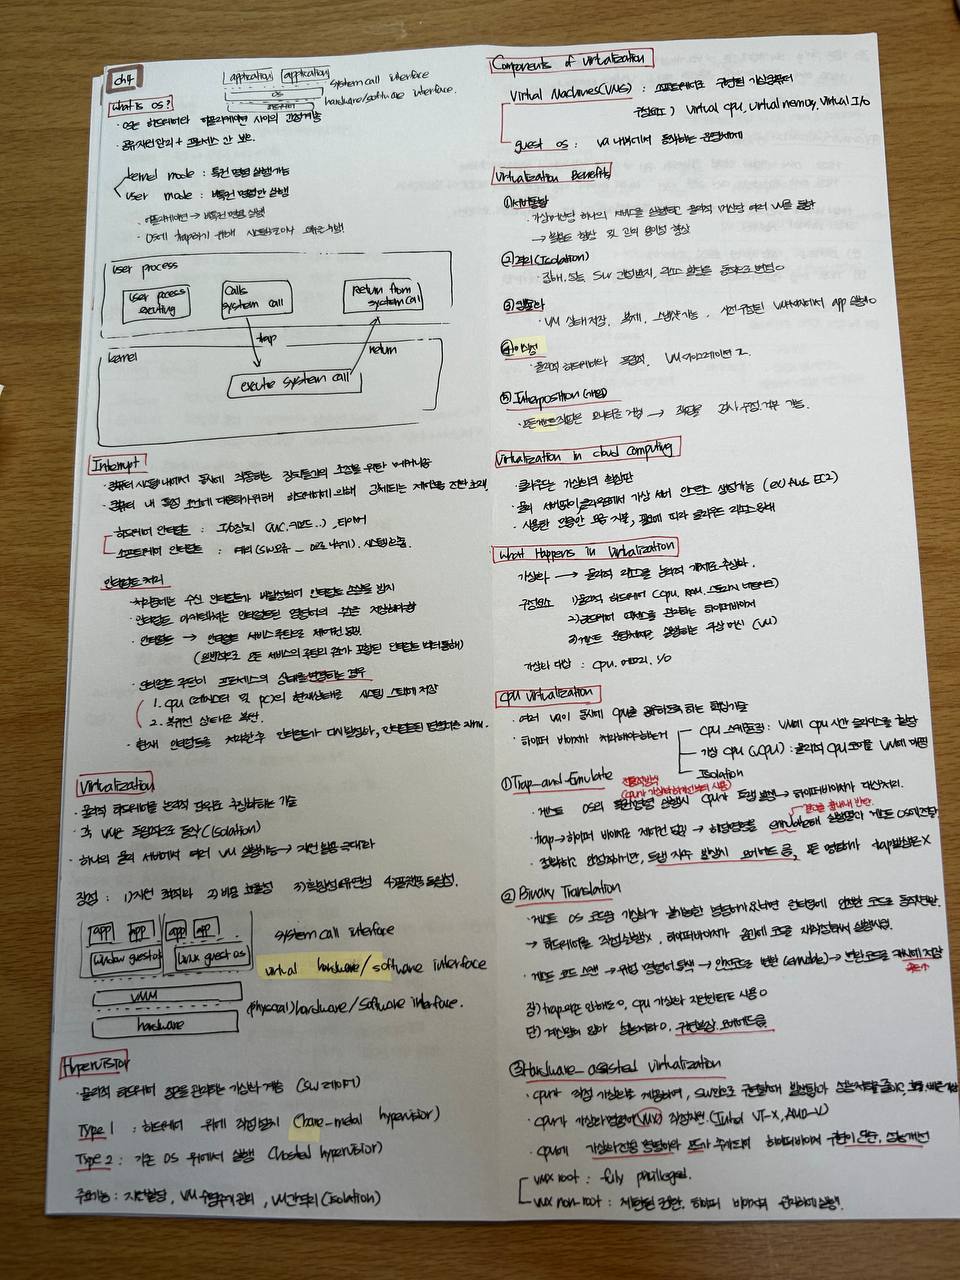 ch4
application application
OS
하드웨어
system call interface
hardware/software interface.
What is OS?
· OS는 하드웨어와 애플리케이션 사이의 관리
· 공유자원 관리 + 프로세스 간 보호.
kernel mode : 특권 명령 실행 가능
user mode : 비특권 명령만 실행
· 애플리케이션 → 비특권 명령 실행
· OS에 trap하기 위해
user process
user process
executing
Calls
system call
return from
system call
trap
return
kernel
execute system call
Interrupt
· 컴퓨터 시스템 내에서 동시에 작동하는 장치들간의 조정을 위한 메커니즘
· 컴퓨터 내 특정 조건에 대응하기 위해 하드웨어에 의해 강제되는 제어흐름 전환 요청.
하드웨어 인터럽트 : I/O장치 (NIC, 키보드..), 타이머
소프트웨어 인터럽트 : 에러(SW오류 _ 0으로 나누기), 시스템콜.
인터럽트 처리
· 처리중에는 수신 인터럽트가 비활성되어 인터럽트 손실을 방지
· 인터럽트 아키텍쳐는 인터럽트된 명령어의 주소를 저장해야함
· 인터럽트 → 인터럽트 서비스 루틴으로 제어권 이동.
(일반적으로 모든 서비스의 루틴의 주소가 포함된 인터럽트 벡터 통해)
· 인터럽트 루틴이 프로세스의 상태를 변경하는 경우
1. CPU (레지스터 및 PC)의 현재상태를 시스템 스택에 저장
2. 복귀전 상태로 복원.
· 현재 인터럽트를 처리한 후 인터럽트가 다시 활성화, 인터럽트된 명령어는 재개.
Virtualization
· 물리적 하드웨어를 논리적 단위로 추상화하는 기술
· 각 VM은 독립적으로 동작 (Isolation)
· 하나의 물리 서버에서 여러 VM 실행가능 → 자원 활용 극대화
장점 : 1)자원 최적화 2)비용 효율성 3)확장성&유연성 4)플랫폼 독립성.
app app app app
window guest os linux guest os
VMM
hardware
system call interface
virtual hardware/software interface
(physical)hardware/software interface.
Hypervisor
· 물리적 하드웨어 자원을 관리하는 가상화 계층 (SW 레이어)
Type 1 : 하드웨어 위에 직접 설치 (bare-metal hypervisor)
Type 2 : 기존 OS 위에서 실행 (hosted hypervisor)
주요기능 : 자원할당, VM 수명주기 관리, VM간 격리 (isolation)
Components of virtualization
Virtual Machines(VMs) : 소프트웨어로 구현된 가상컴퓨터
구성요소) virtual cpu, virtual memory, virtual I/O
guest OS : VM 내부에서 동작하는 운영체제
Virtualization Benefits
①서버통합
· 가상머신당 하나의 서비스를 실행하고 물리적 머신당 여러 VM을 통합
→ 활용도 향상 및 관리 용이성 향상
②격리(Isolation)
· 장애, 성능, SW 간섭방지, 리소스 할당을 동적으로 변경 O
③캡슐화
· VM 상태저장, 복제, 스냅샷 가능. 사전 구성된 VM에서 app 실행 O
④이식성
· 물리적 하드웨어와 독립적, VM 마이그레이션 I.
⑤Interposition
· 모든 게스트 작업은 모니터를 거침 → 작업을 검사·수정·거부 가능.
Virtualization in cloud computing
· 클라우드는 가상화의 확장판
· 물리 서버없이 클라우드에서 가상 서버 인스턴스 생성가능 (ex) AWS EC2)
· 사용한 만큼만 요금 지불, 필요에 따라 클라우드 리소스 임대
What Happens in Virtualization
가상화 → 물리적 리소스를 논리적 개체로 추상화.
구성요소 1)물리적 하드웨어 (CPU, RAM, 스토리지, 네트워크)
2)하드웨어 리소스를 관리하는 하이퍼바이저
3)게스트 운영체제를 실행하는 가상 머신 (VM)
가상화 대상 : CPU, 메모리, I/O
CPU virtualization
· 여러 VM이 동시에 CPU를 공유하도록 하는 핵심기술
· 하이퍼 바이저가 처리해야하는거
CPU 스케줄링 : VM에 CPU 시간 슬라이스를 할당
가상 CPU (vCPU) : 물리적 CPU 코어를 VM에 매핑
Isolation
①Trap_and_Emulate
(CPU가 가상화하기전부터 사용)
· 게스트 OS의 특권명령 실행시 CPU가 트랩 발생 → 하이퍼바이저가 대신처리.
· trap → 하이퍼 바이저로 제어권 넘김 → 해당명령을 emulate해 실행했다 게스트 OS에 전달.
· 정확하고 안정적이지만, 트랩 자주 발생시 오버헤드 큼, 모든 명령어가 trap발생은 X
② Binary Translation
· 게스트 OS 코드중 가상화가 불가능한 명령어가 있다면 런타임에 안전한 코드로 동적변환.
→ 하드웨어로 직접실행X, 하이퍼바이저가 중간에 코드를 재작성해서 실행시킴.
· 게스트 코드 스캔 → 위험 명령어 탐색 → 안전코드로 변환 (emulate) → 변환 코드를 캐시에 저장
장) trap없는 명령어도 O, CPU 가상화 지원안해도 사용 O
단) 계산량이 많아 성능저하 O, 구현복잡, 오버헤드 큼.
③Hardware_assisted virtualization
· CPU가 직접 가상화기능을 제공하여, SW만으로 구현할때 발생했던 성능저하를 줄이고,
· CPU가 가상화 명령어(VMX) 직접지원. (Intel VT-X, AMD-V)
· CPU에 가상화 전용 명령어와 모드가 추가되어 하이퍼바이저 구현이 단순, 성능개선
VMX root : fully privileged.
VMX non-root : 제한된 권한, 하이퍼 바이저의 관리하에 실행.